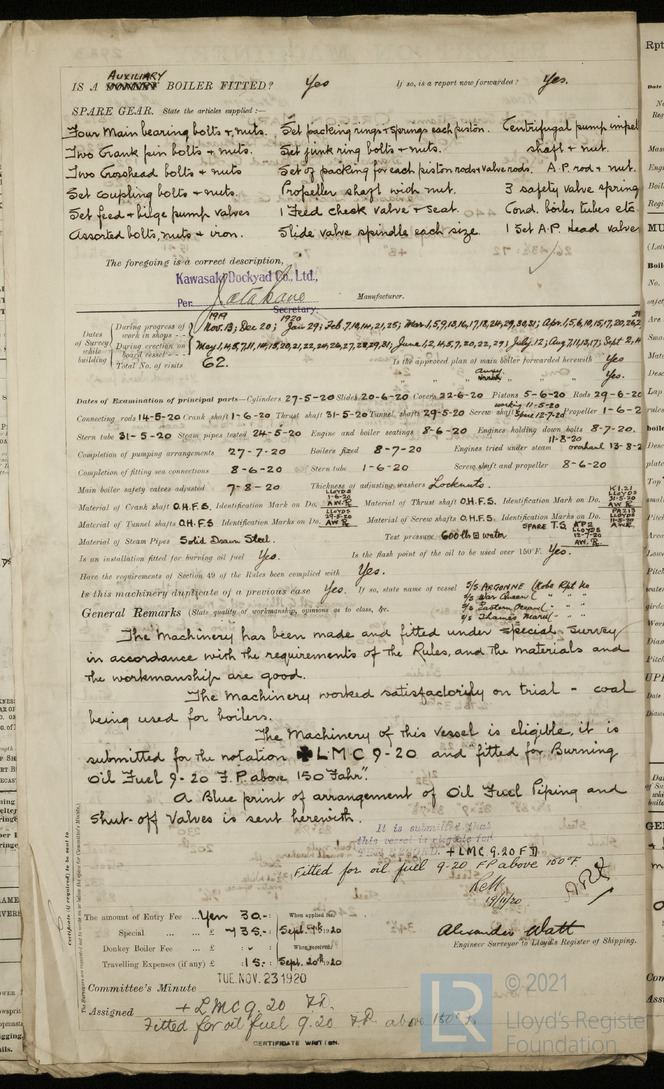 IS A AUXILIARY BOILER FITTED? Yes If so, is a report now forwarded? Yes.
SPARE GEAR. State the articles supplied:—
Four Main bearing bolts & nuts. Set packing rings & springs each piston. Centrifugal pump impel
Two Crank pin bolts & nuts. Set junk ring bolts & nuts. shaft & nut.
Two Crosshead bolts & nuts Set of packing for each piston rods & valve rods. A.P. rod & nut.
Set coupling bolts & nuts. Propeller shaft with nut. 3 safety valve spring
Set feed & bilge pump valves 1 Feed check valve & seat. Cond. boiler tubes etc.
Assorted bolts, nuts & iron. Slide valve spindle each size. 1 Set A.P. Head valve
The foregoing is a correct description,
Kawasaki Dockyad Co., Ltd.,
Per Manufacturer.
Secretary.
1919 1920
Dates of Survey while building
During progress of work in shops -- Nov. 13; Dec 20; Jan 29; Feb. 7,10,14,21,25; Mar. 1,5,9,10,16,17,18,24,29,30,31; Apr. 1,5,6,10,15,17,20,26,2
During erection on board vessel --- May 1,4,5,7,11,12,15,20,21,22,24,26,27,28,29,31; June 1,2,4,5,7,20,22,29; July 12; Aug 7,11,13,17; Sept 2,4
Total No. of visits 62. Is the approved plan of main boiler forwarded herewith Yes
" " " " Yes.
Dates of Examination of principal parts—Cylinders 27-5-20 Slides 20-6-20 Covers 22-6-20 Pistons 5-6-20 Rods 29-6-20
Connecting rods 14-5-20 Crank shaft 1-6-20 Thrust shaft 31-5-20 Tunnel shafts 29-5-20 Screw shaft working 11-5-20 Spare 12-7-20 Propeller 1-6-2
Stern tube 31-5-20 Steam pipes tested 24-5-20 Engine and boiler seatings 8-6-20 Engines holding down bolts 8-7-20.
Completion of pumping arrangements 27-7-20 Boilers fixed 8-7-20 Engines tried under steam 11-8-20 overhaul 13-8-2
Completion of fitting sea connections 8-6-20 Stern tube 1-6-20 Screw shaft and propeller 8-6-20
Main boiler safety valves adjusted 7-8-20 Thickness of adjusting washers Locknuts.
Material of Crank shaft O.H.F.S. Identification Mark on Do. LLOYDS 1-6-20 A.W.R. Material of Thrust shaft O.H.F.S. Identification Mark on Do. LLOYDS 31-5-20 A.W.R.
Material of Tunnel shafts O.H.F.S Identification Marks on Do. LLOYDS 29-5-20 A.W.R Material of Screw shafts O.H.F.S. Identification Marks on Do. LLOYDS 11-5-20 A.W.R.
Material of Steam Pipes Solid Drawn Steel. Test pressure 600 lbs water SPARE T.S. LLOYDS 12-7-20 A.W.R.
Is an installation fitted for burning oil fuel Yes. Is the flash point of the oil to be used over 150°F. Yes.
Have the requirements of Section 49 of the Rules been complied with Yes.
Is this machinery duplicate of a previous case Yes. If so, state name of vessel S/S ARGONNE (Kobe Rpt No
S/S War Queen ( " " "
S/S Eastern Ocean ( - " "
General Remarks (State quality of workmanship, opinions as to class, &c.
The Machinery has been made and fitted under special survey
in accordance with the requirements of the Rules, and the materials and
the workmanship are good.
The Machinery worked satisfactorily on trial - coal
being used for boilers.
The Machinery of this vessel is eligible, it is
submitted for the notation ✠ L M C 9-20 and "fitted for Burning
Oil Fuel 9-20 F.P. above 150 Fahr".
A Blue print of arrangement of Oil Fuel Piping and
Shut-off Valves is sent herewith.
It is submitted that
this vessel is eligible for
THE RECORD. + LMC 9.20 F D
Fitted for oil fuel 9-20 FP above 150°F
19/11/20
The amount of Entry Fee ... Yen 30.- When applied for,
Special ... ... £ 735.- Sept. 9th 1920
Donkey Boiler Fee ... £ : - : When received,
Travelling Expenses (if any) £ : 15 : - Sept. 20th 1920
Alexander Watt
Engineer Surveyor to Lloyd's Register of Shipping.
TUE. NOV. 23 1920
Committee's Minute
Assigned + L M C 9.20 F.D.
Fitted for oil fuel 9.20 F.P. above 150° F.
CERTIFICATE WRITTEN.
LR © 2021
Lloyd's Register
Foundation